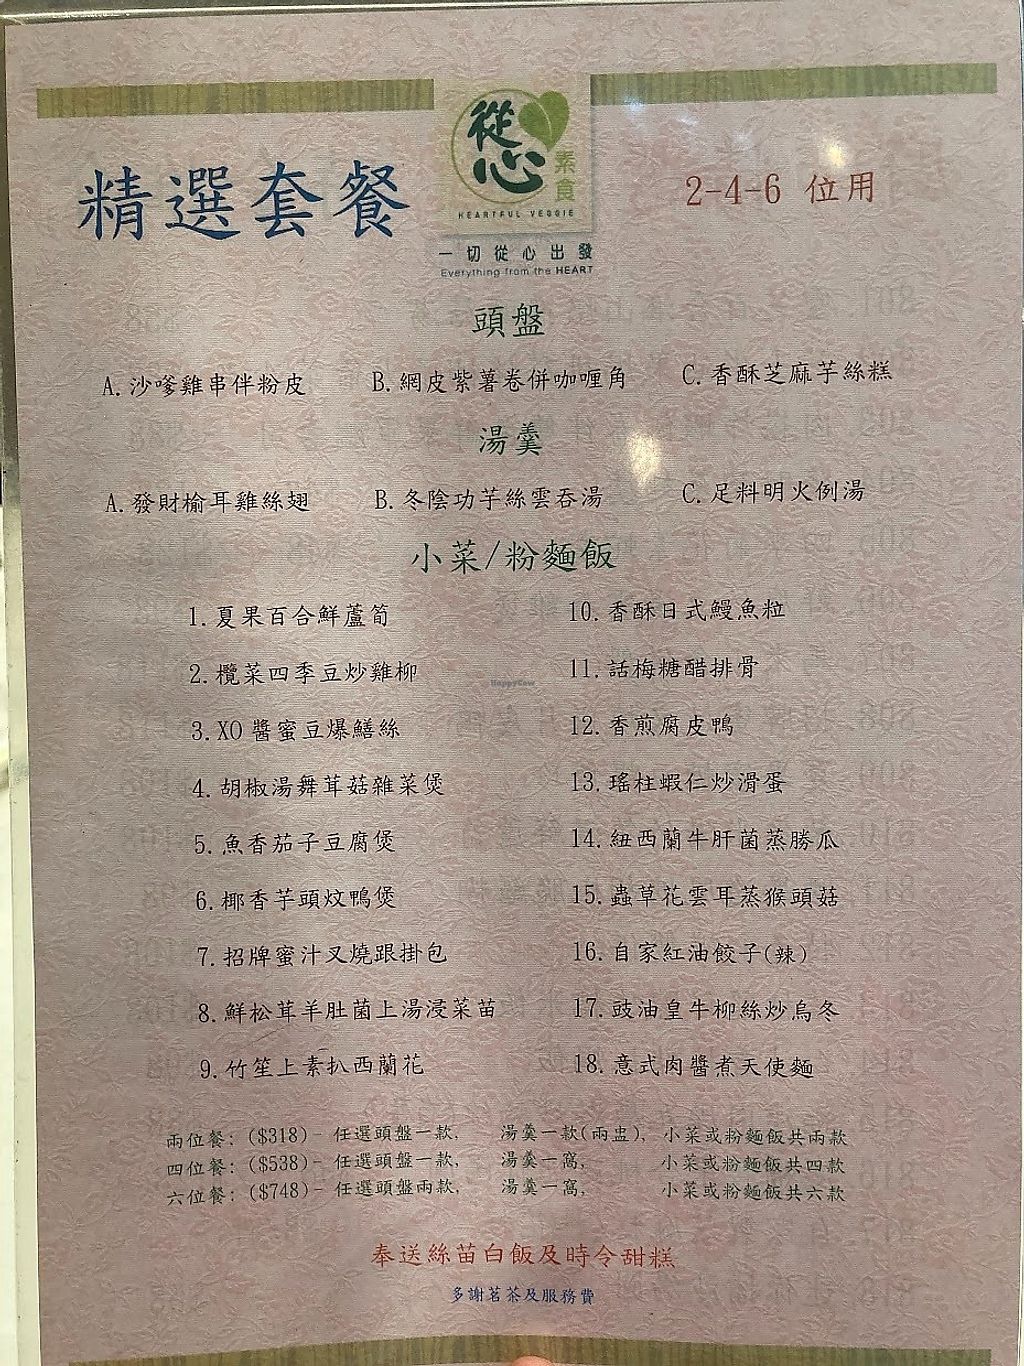 從心
素食
HEARTFUL VEGGIE
一切從心出發
Everything from the HEART
精選套餐
2-4-6 位用
頭盤
A.沙嗲雞串伴粉皮 B.網皮紫薯卷併咖喱角 C.香酥芝麻芋絲糕
湯羹
A.發財榆耳雞絲翅 B.冬陰功芋絲雲吞湯 C.足料明火例湯
小菜/粉麵飯
1.夏果百合鮮蘆筍
2.欖菜四季豆炒雞柳
3.XO醬蜜豆爆鱔絲
4.胡椒湯舞茸菇雜菜煲
5.魚香茄子豆腐煲
6.椰香芋頭炆鴨煲
7.招牌蜜汁叉燒跟掛包
8.鮮松茸羊肚菌上湯浸菜苗
9.竹笙上素扒西蘭花
10.香酥日式鰻魚粒
11.話梅糖醋排骨
12.香煎腐皮鴨
13.瑤柱蝦仁炒滑蛋
14.紐西蘭牛肝菌蒸勝瓜
15.蟲草花雲耳蒸猴頭菇
16.自家紅油餃子(辣)
17.豉油皇牛柳絲炒烏冬
18.意式肉醬煮天使麵
兩位餐:($318)- 任選頭盤一款, 湯羹一款(兩盅), 小菜或粉麵飯共兩款
四位餐:($538)- 任選頭盤一款, 湯羹一窩, 小菜或粉麵飯共四款
六位餐:($748)- 任選頭盤兩款, 湯羹一窩, 小菜或粉麵飯共六款
奉送絲苗白飯及時令甜糕
多謝茗茶及服務費
HappyCow